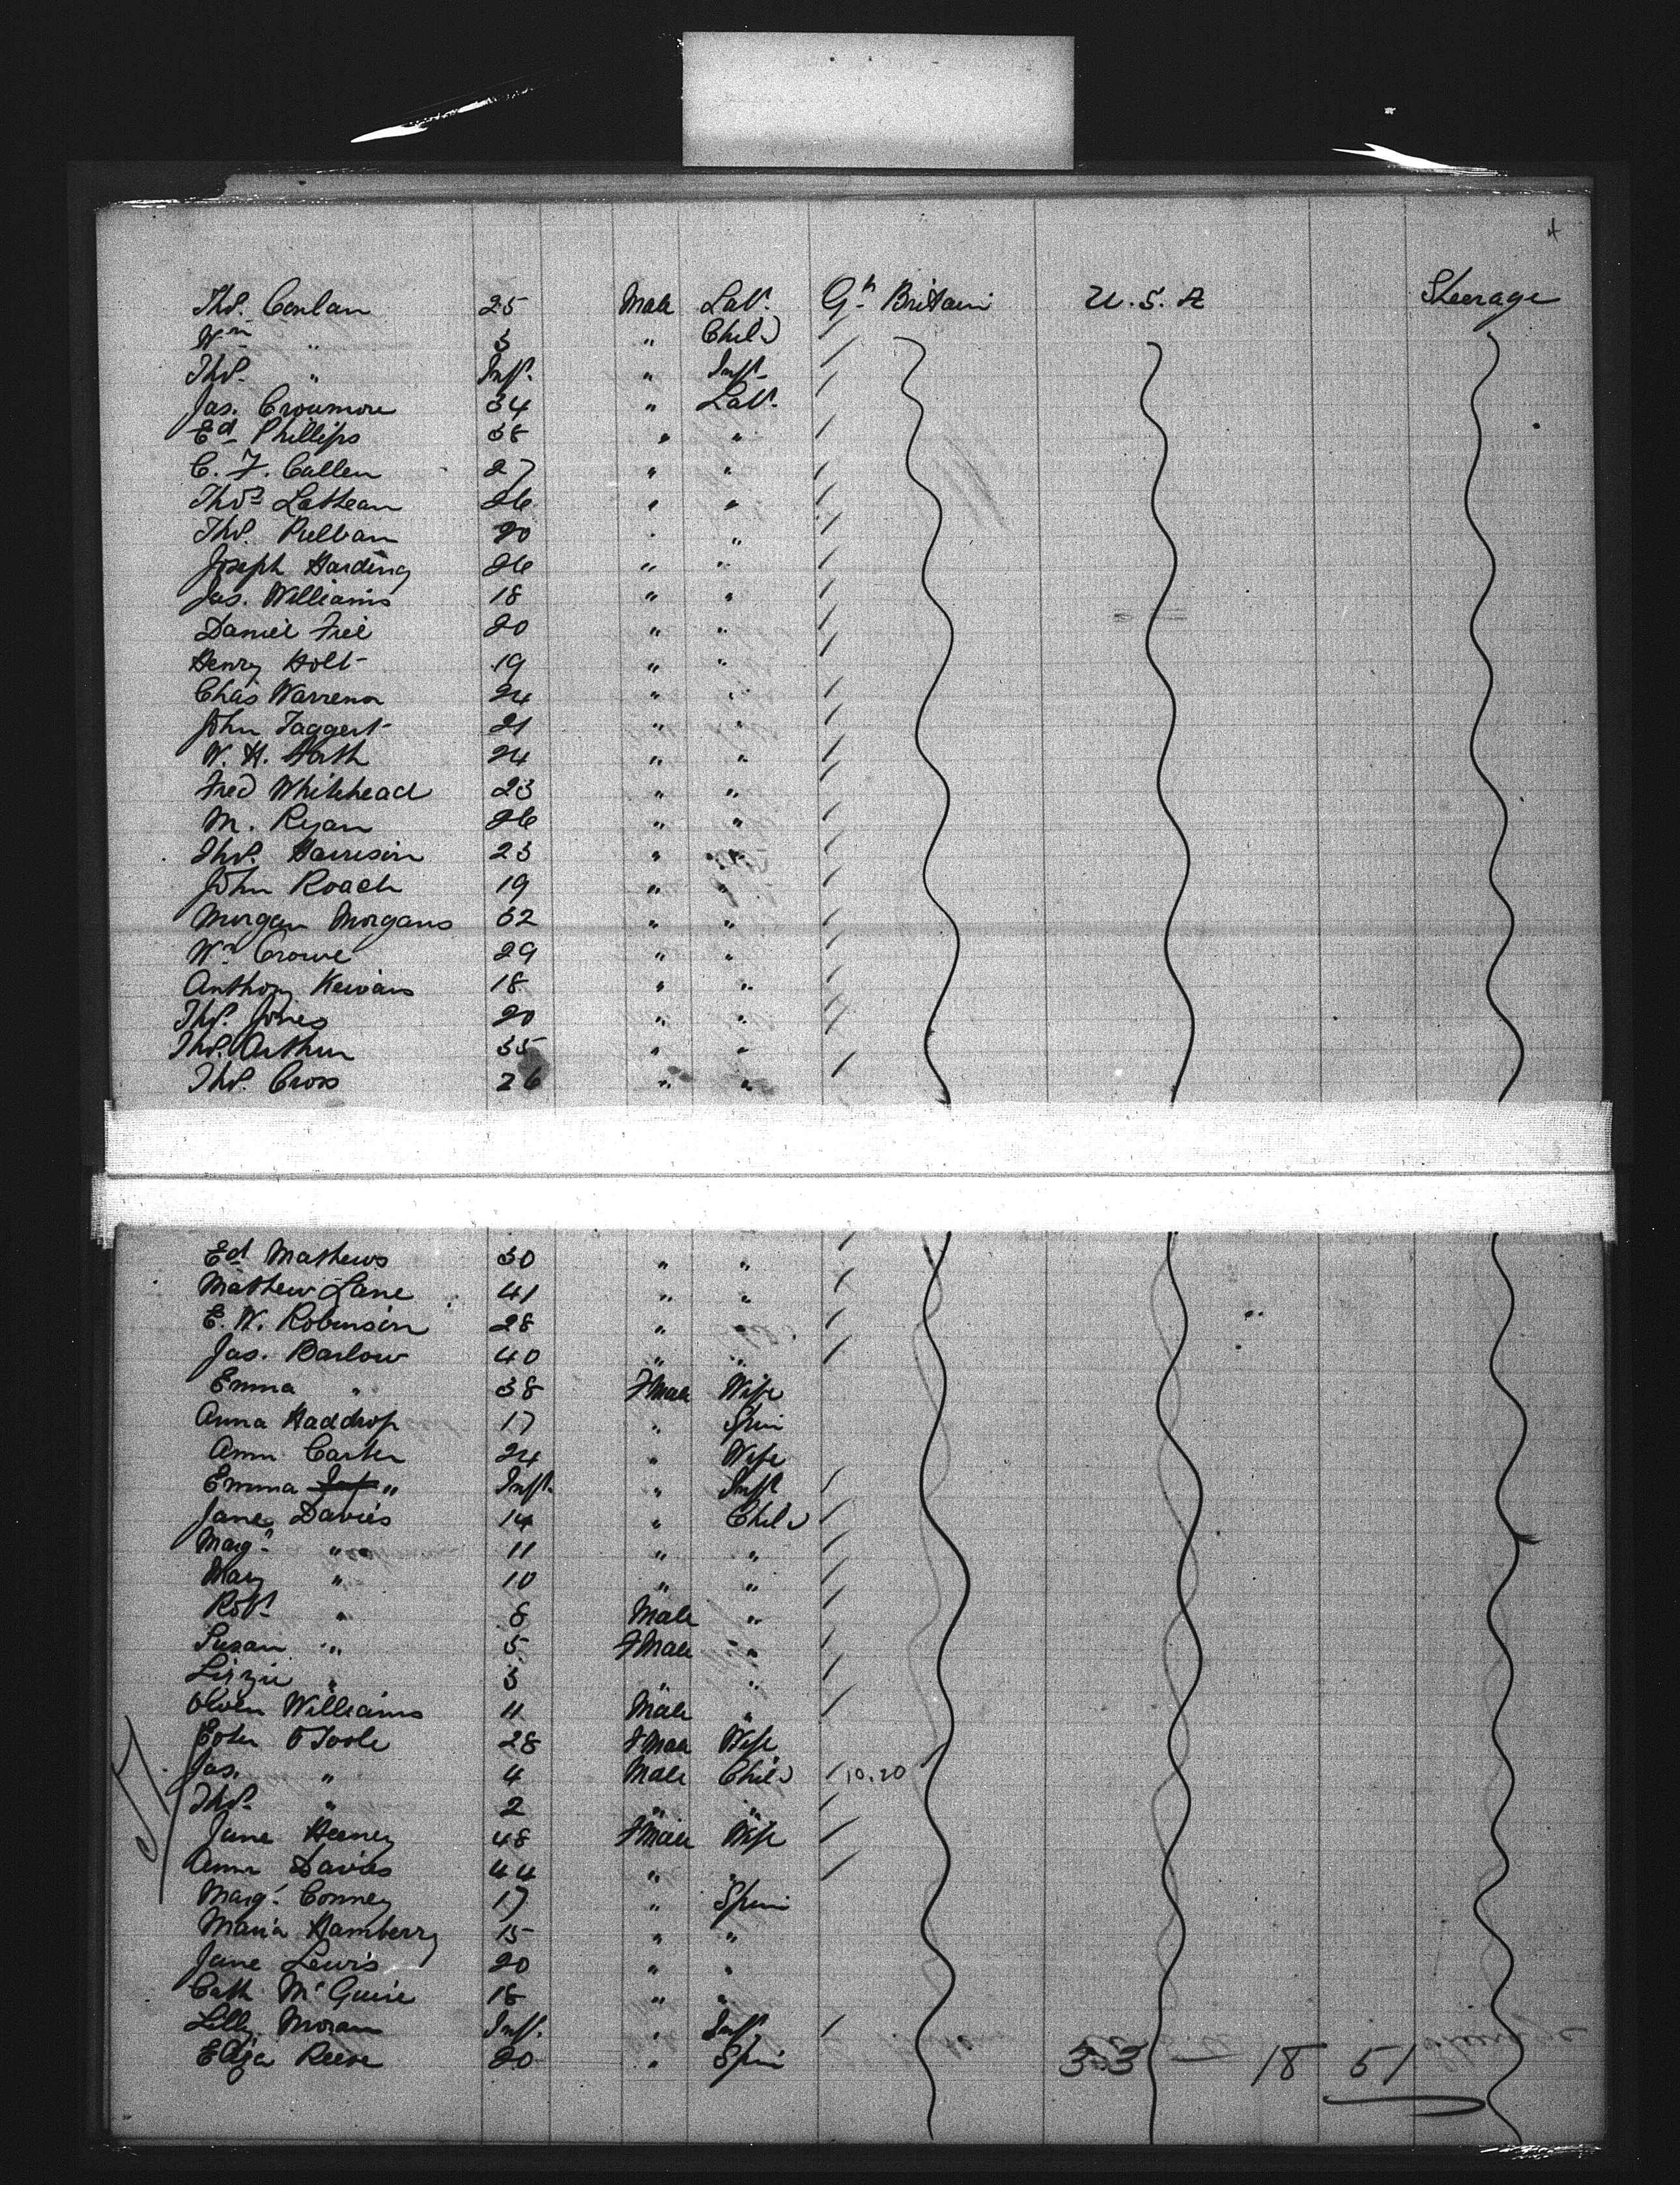 Thos. Conlan 25 Male Labr. Gt Britain U.S.A Steerage
Wm " 3 " Child
Thos. " Inft. " Inft.
Jas. 34 " Labr.
Ed. Phillips 38 " "
C. F. Cullen 27 " "
Thos. 26 " "
Thos. 20 " "
Joseph Harding 26 " "
Jas. Williams 18 " "
Daniel Friel 20 " "
Henry Holt 19 " "
Chas Warrener 24 " "
John Taggert 21 " "
W. H. 24 " "
Fred Whitehead 23 " "
M. Ryan 26 " "
Thos. Harrison 23 " "
John Roach 19 " "
Morgan Morgans 32 " "
Wm Crowe 29 " "
Anthony 18 " "
Thos. Jones 20 " "
Thos. Arthur 35 " "
Thos. Cross 26 " "
Ed Mathews 30 " "
Mathew Lane 41 " "
E. W. Robinson 28 " "
Jas. Barlow 40 " "
Emma " 38 FMale Wife
Anna Haddrop 17 " Spin
Ann Carter 24 " Wife
Emma " Inft. " Inft
Jane Davies 14 " Child
Margt " 11 " "
Mary " 10 " "
Robt " 8 Male "
Susan " 5 FMale "
Lizzie " 3 " "
Owen Williams 11 Male "
Ester O'Toole 28 FMale Wife
Jas. " 4 Male Child 10.20
Thos. " 2 " "
Jane Heeney 48 FMale Wife
Ann Davies 44 " "
Margt. Conney 17 " Spin
Maria Hamberry 15 " "
Jane Lewis 20 " "
Cath McGuire 18 " "
Lilly Moran Inft. " Inft.
Eliza Reeve 20 " Spin
33 — 18 51